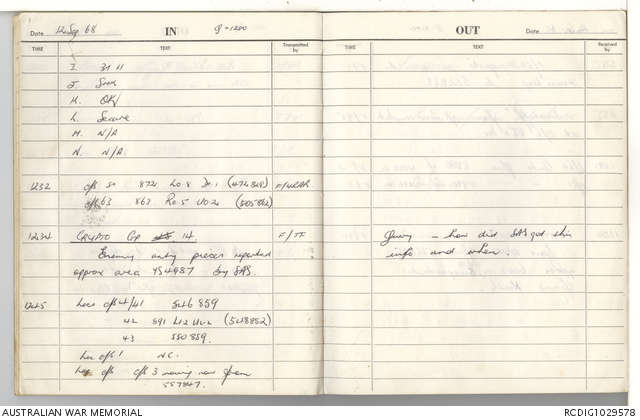 Date 12 Sep 68 IN
TIME TEXT Transmitted by
I. 31 H
J.
K. OK
L. Secure
M. N/A
N. N/A
1232 c/s 872 (474868)
c/s 63 863 R0.5 U0.2 (505862)
1234 CRYPTO Gp 14. F/TF
Enemy arty pieces reported
approx area YS4987 by SAS.
1245 Locs c/s 4/41 546 859
42 891 (548882)
43 550 859.
Loc c/s 1 NC.
Loc c/s c/s 3 moving now from
557847.
OUT Date
TIME TEXT Received by
Query - how did SAS get this
info and when.
AUSTRALIAN WAR MEMORIAL RCDIG1029578